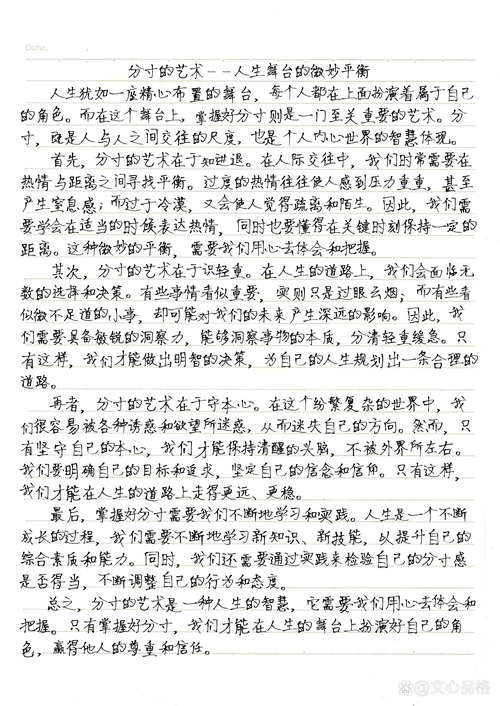 Date.
分寸的艺术--人生舞台的微妙平衡
人生犹如一座精心布置的舞台，每个人都在上面扮演着属于自己
的角色。而在这个舞台上，掌握好分寸则是一门至关重要的艺术。分
寸，既是人与人之间交往的尺度，也是个人内心世界的智慧体现。
首先，分寸的艺术在于知进退。在人际交往中，我们时常需要在
热情与距离之间寻找平衡。过度的热情往往使人感到压力重重，甚至
产生窒息感；而过于冷漠，又会使人觉得疏离和陌生。因此，我们需
要学会在适当的时候表达热情，同时也要懂得在关键时刻保持一定的
距离。这种微妙的平衡，需要我们用心去体会和把握。
其次，分寸的艺术在于识轻重。在人生的道路上，我们会面临无
数的选择和决策。有些事情看似重要，实则只是过眼云烟；而有些看
似微不足道的小事，却可能对我们的未来产生深远的影响。因此，我
们需要具备敏锐的洞察力，能够洞察事物的本质，分清轻重缓急。只
有这样，我们才能做出明智的决策，为自己的人生规划出一条合理的
道路。
再者，分寸的艺术在于守本心。在这个纷繁复杂的世界中，我
们很容易被各种诱惑和欲望所迷惑，从而迷失自己的方向。然而，只
有坚守自己的本心，我们才能保持清醒的头脑，不被外界所左右。
我们要明确自己的目标和追求，坚定自己的信念和信仰。只有这样，
我们才能在人生的道路上走得更远、更稳。
最后，掌握好分寸需要我们不断地学习和实践。人生是一个不断
成长的过程，我们需要不断地学习新知识、新技能，以提升自己的
综合素质和能力。同时，我们还需要通过实践来检验自己的分寸感
是否得当，不断调整自己的行为和态度。
总之，分寸的艺术是一种人生的智慧，它需要我们用心去体会和
把握。只有掌握好分寸，我们才能在人生的舞台上扮演好自己的角
色，赢得他人的尊重和信任。
@文心品格